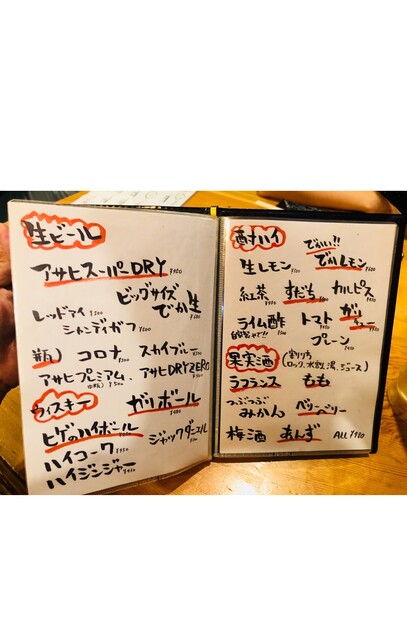 生ビール
アサヒスーパーDRY
ビッグサイズ
でか生
レッドアイ ¥500
シャンディガフ ¥500
瓶) コロナ ¥500 スカイブルー
アサヒプレミアム、アサヒDRYZERO
ウィスキー ガリボール
ヒゲのハイボール
ハイコーク ジャックダニエル
ハイジンジャー
酎ハイ でかい!!
生レモン でかレモン
紅茶 すだち カルピス
ライム酢 トマト ガリチュー
プレーン
果実酒 (割り方
ロック、水割、湯、ジュース)
ラフランス もも
つぶつぶ
みかん ベリーベリー
梅酒 あんず ALL